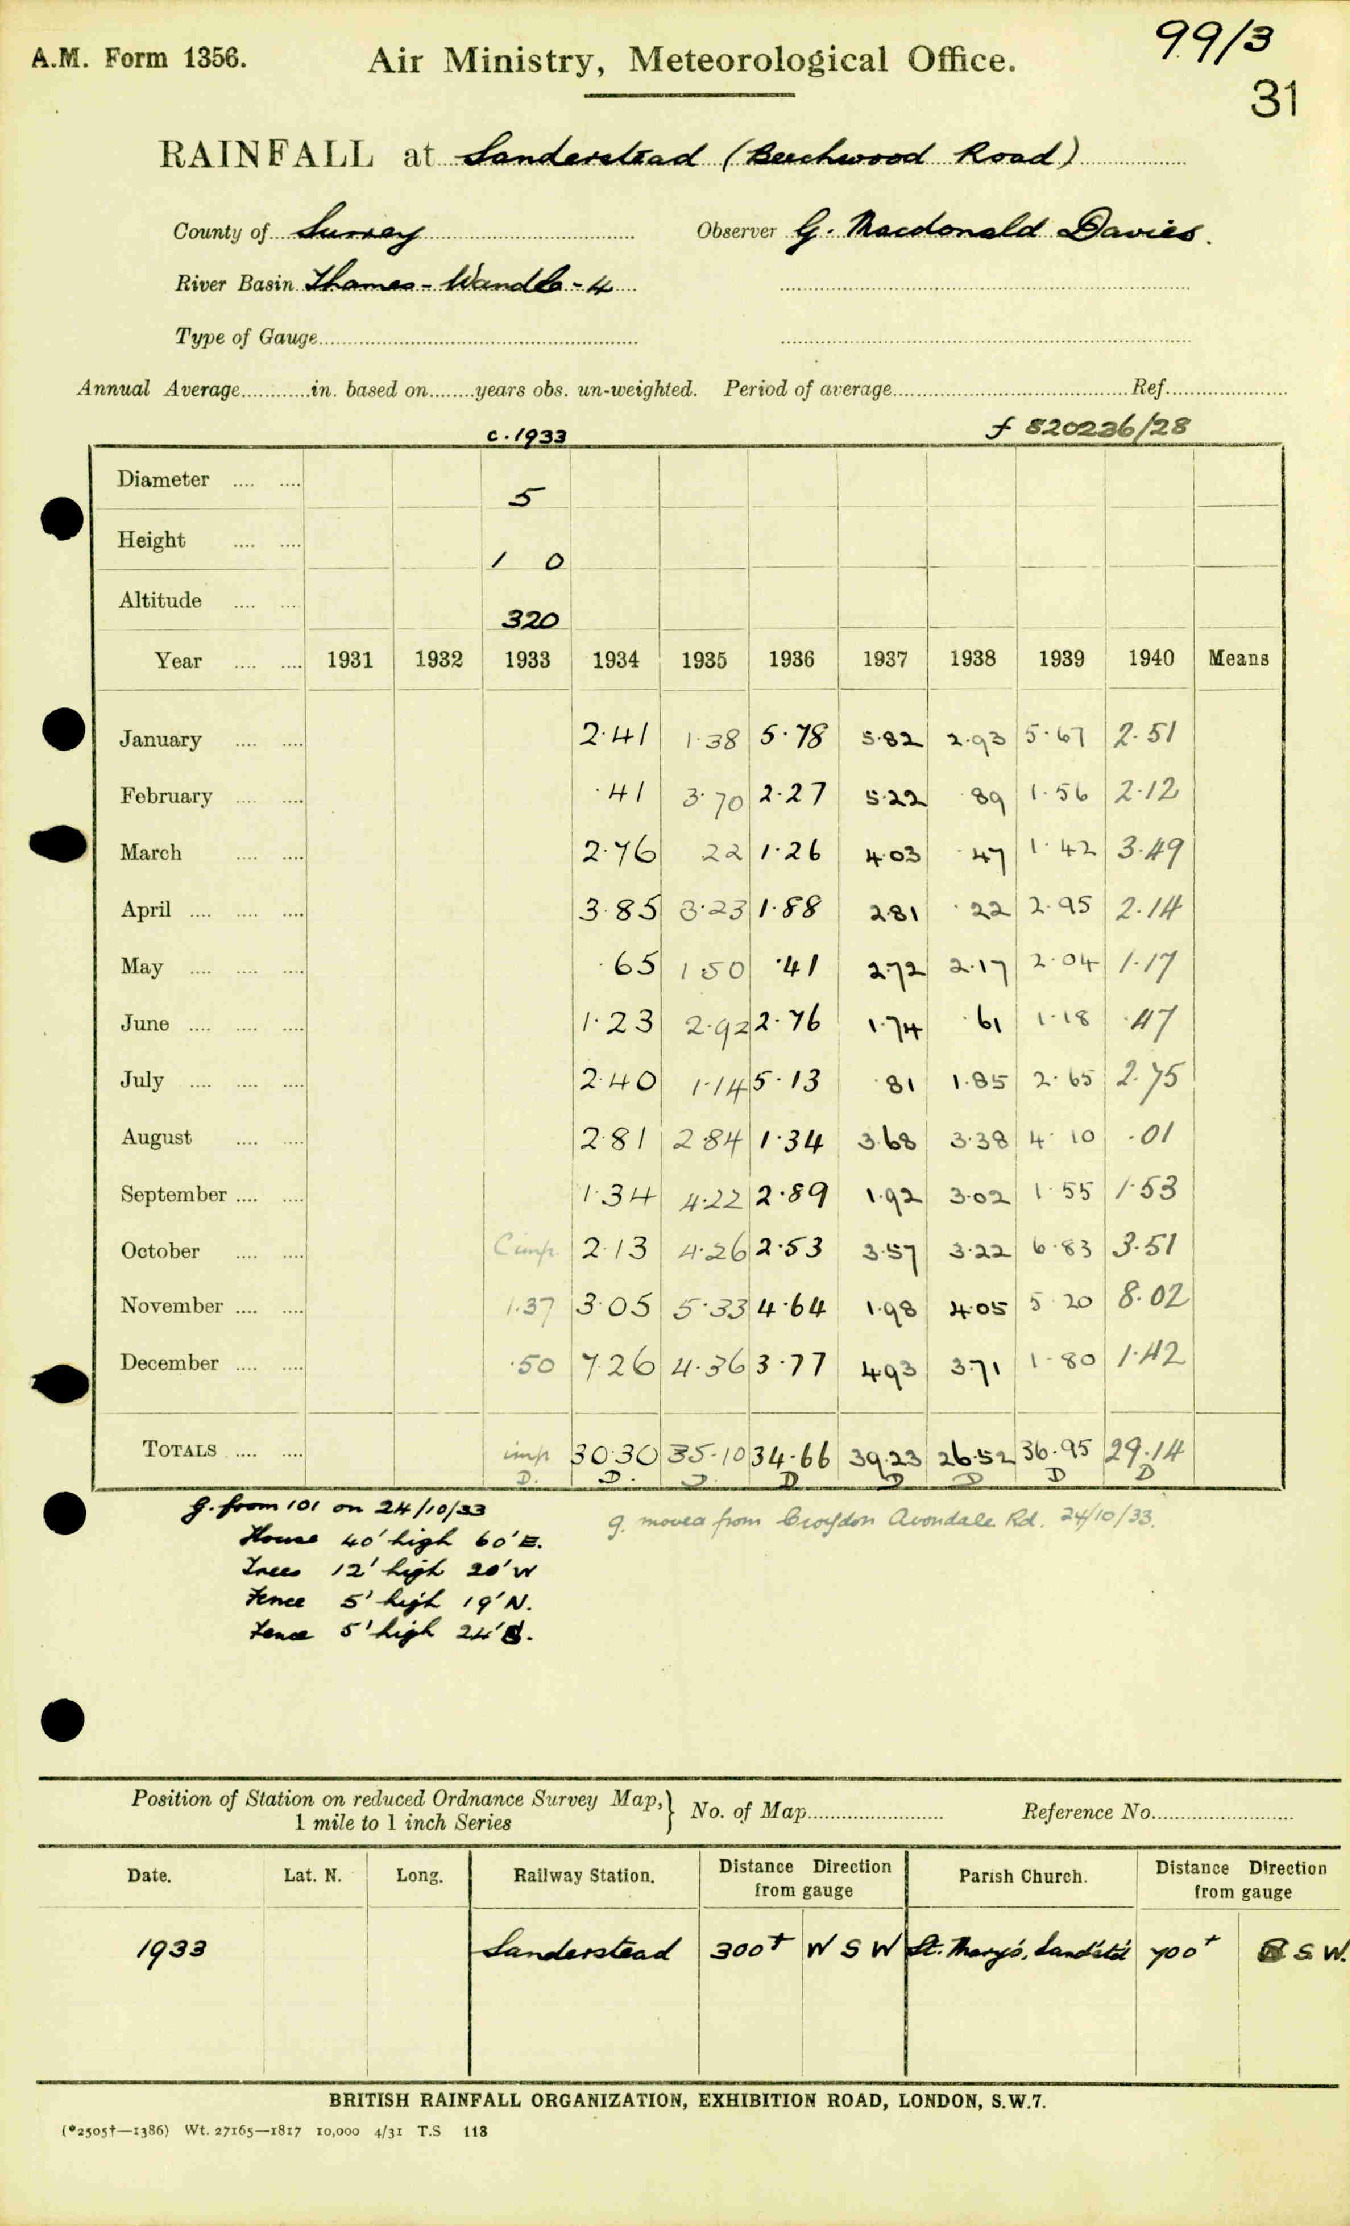 A.M. Form 1356.
Air Ministry, Meteorological Office.
99/3
31
RAINFALL at Sanderstead (Beechwood Road)
County of Surrey
Observer G. Macdonald Davies.
River Basin Thames - Wandle - 4
Type of Gauge
Annual Average in. based on years obs. un-weighted. Period of average Ref.
c.1933 f 520236/28
Diameter .... .... 5
Height .... .... 1 0
Altitude .... .... 320
Year .... .... 1931 1932 1933 1934 1935 1936 1937 1938 1939 1940 Means
January .... .... 2.41 1.38 5.78 5.82 2.93 5.67 2.51
February .... .... .41 3.70 2.27 5.22 .89 1.56 2.12
March .... .... 2.76 22 1.26 4.03 .47 1.42 3.49
April .... .... .... 3.85 3.23 1.88 2.81 .22 2.95 2.14
May .... .... .... .65 1.50 .41 2.72 2.17 2.04 1.17
June .... .... .... 1.23 2.92 2.76 1.74 .61 1.18 .47
July .... .... .... 2.40 1.14 5.13 .81 1.85 2.65 2.75
August .... .... 2.81 2.84 1.34 3.68 3.38 4.10 .01
September .... .... 1.34 4.22 2.89 1.92 3.02 1.55 1.53
October .... .... Cimp. 2.13 4.26 2.53 3.57 3.22 6.83 3.51
November .... .... 1.37 3.05 5.33 4.64 1.98 4.05 5.20 8.02
December .... .... .50 7.26 4.36 3.77 4.93 3.71 1.80 1.42
TOTALS .... .... imp 30.30 35.10 34.66 39.23 26.52 36.95 29.14
D. D. D. D D D D D
g. from 101 on 24/10/33
g. moved from Croydon Avondale Rd. 24/10/33.
House 40' high 60' E.
Trees 12' high 20' W
Fence 5' high 19' N.
Fence 5' high 24' S.
Position of Station on reduced Ordnance Survey Map,
1 mile to 1 inch Series
No. of Map
Reference No.
Date. Lat. N. Long. Railway Station. Distance Direction from gauge Parish Church. Distance Direction from gauge
1933 Sanderstead 300+ W S W St. Mary's, Sand'st'd 700+ S W.
BRITISH RAINFALL ORGANIZATION, EXHIBITION ROAD, LONDON, S.W.7.
(*2505†—1386) Wt. 27165—1817 10,000 4/31 T.S 113